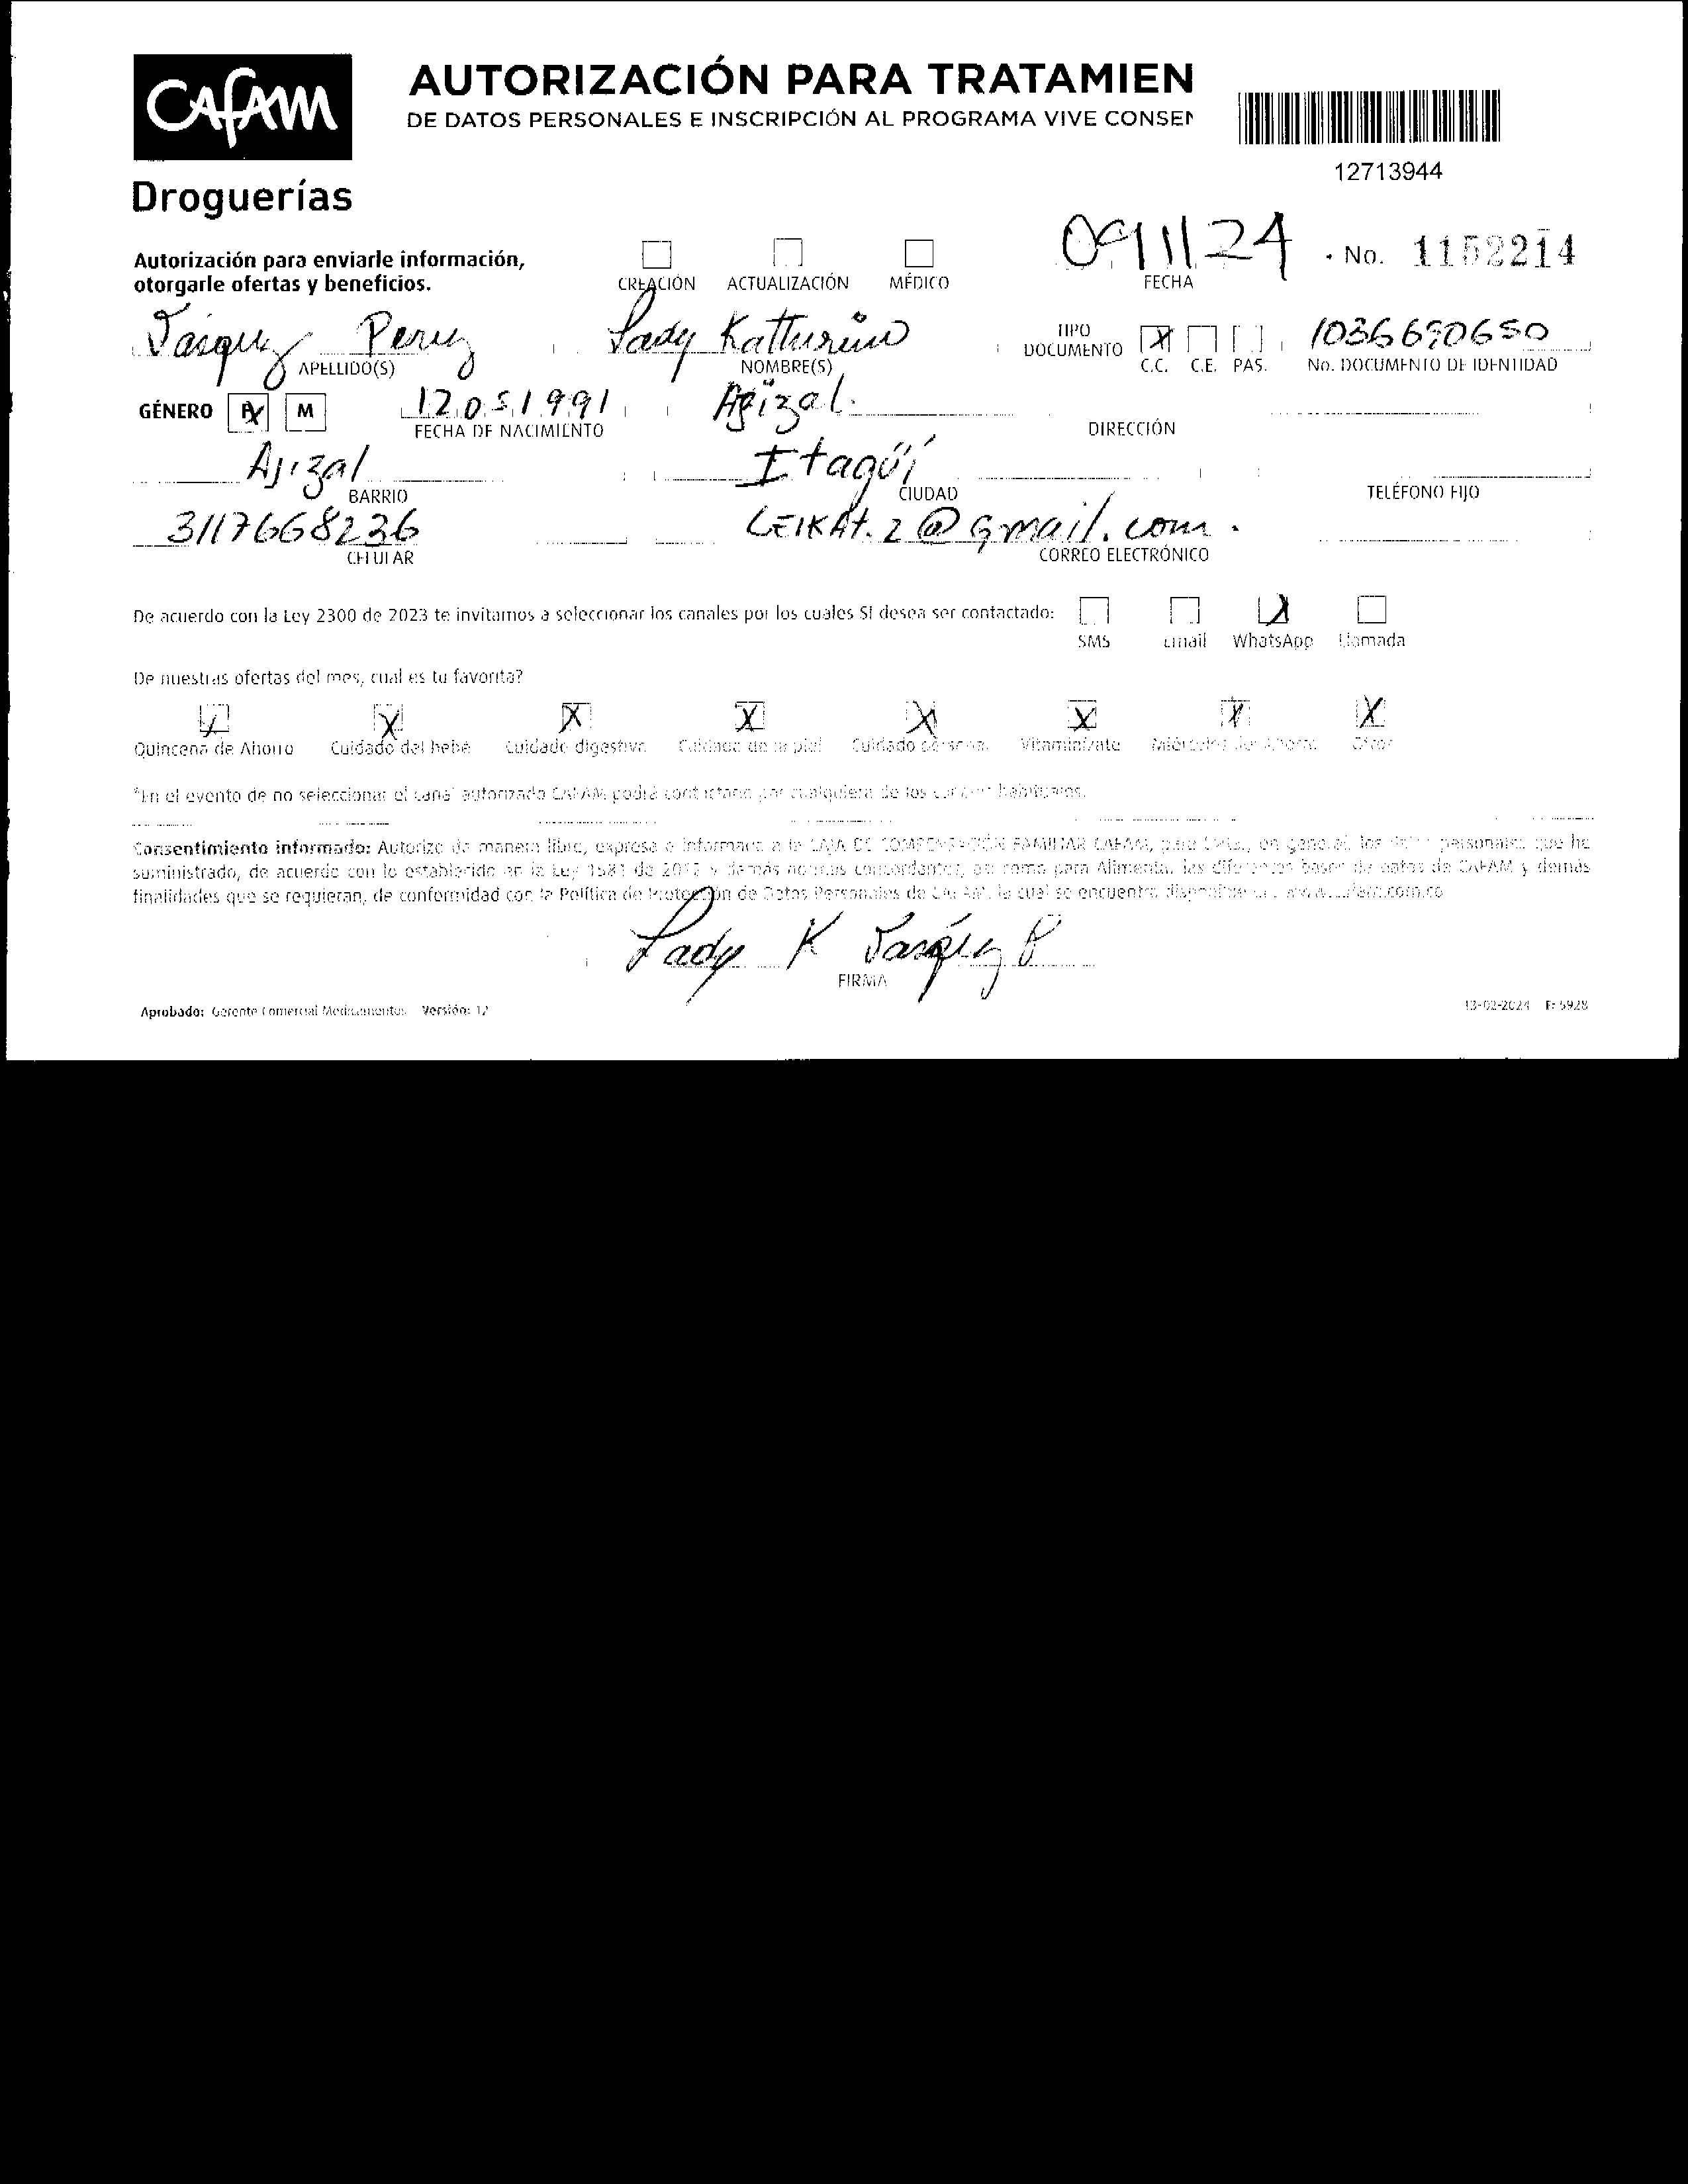 CAFAM
Droguerías
AUTORIZACIÓN PARA TRATAMIEN
DE DATOS PERSONALES E INSCRIPCIÓN AL PROGRAMA VIVE CONSEN
12713944
Autorización para enviarle información,
otorgarle ofertas y beneficios.
CREACIÓN ACTUALIZACIÓN MÉDICO
091124
FECHA
No. 1152214
Vasquez Perez
APELLIDO(S)
Lady Katherine
NOMBRE(S)
TIPO
DOCUMENTO
X
C.C. C.E. PAS.
1036650650
No. DOCUMENTO DE IDENTIDAD
GÉNERO F X M
12051991
FECHA DE NACIMIENTO
Ajizal.
DIRECCIÓN
Ajizal
BARRIO
Itagüí
CIUDAD
TELÉFONO FIJO
3117668236
CELULAR
LEIKAt.2@gmail.com.
CORREO ELECTRÓNICO
De acuerdo con la Ley 2300 de 2023 te invitamos a seleccionar los canales por los cuales SI desea ser contactado:
X
SMS Email WhatsApp Llamada
De nuestras ofertas del mes, cual es tu favorita?
X X X X X X X X
Quincena de Ahorro Cuidado del bebé Cuidado digestivo Cuidado de la piel Cuidado personal Vitaminízate Miércoles de Ahorro Otros
*En el evento de no seleccionar el canal autorizado CAFAM podrá contactarlo por cualquiera de los canales habituales.
Consentimiento informado: Autorizo de manera libre, expresa e informada a la CAJA DE COMPENSACIÓN FAMILIAR CAFAM, para en general, los datos personales que he
suministrado, de acuerdo con lo establecido en la Ley 1581 de 2012 y demás normas concordantes, así como para Alimentar las diferentes bases de datos de CAFAM y demás
finalidades que se requieran, de conformidad con la Política de Protección de Datos Personales de CAFAM, la cual se encuentra disponible en www.cafam.com.co
Lady K Vasquez P
FIRMA
Aprobado: Gerente Comercial Medicamentos Versión: 12
13-02-2024 F: 5928